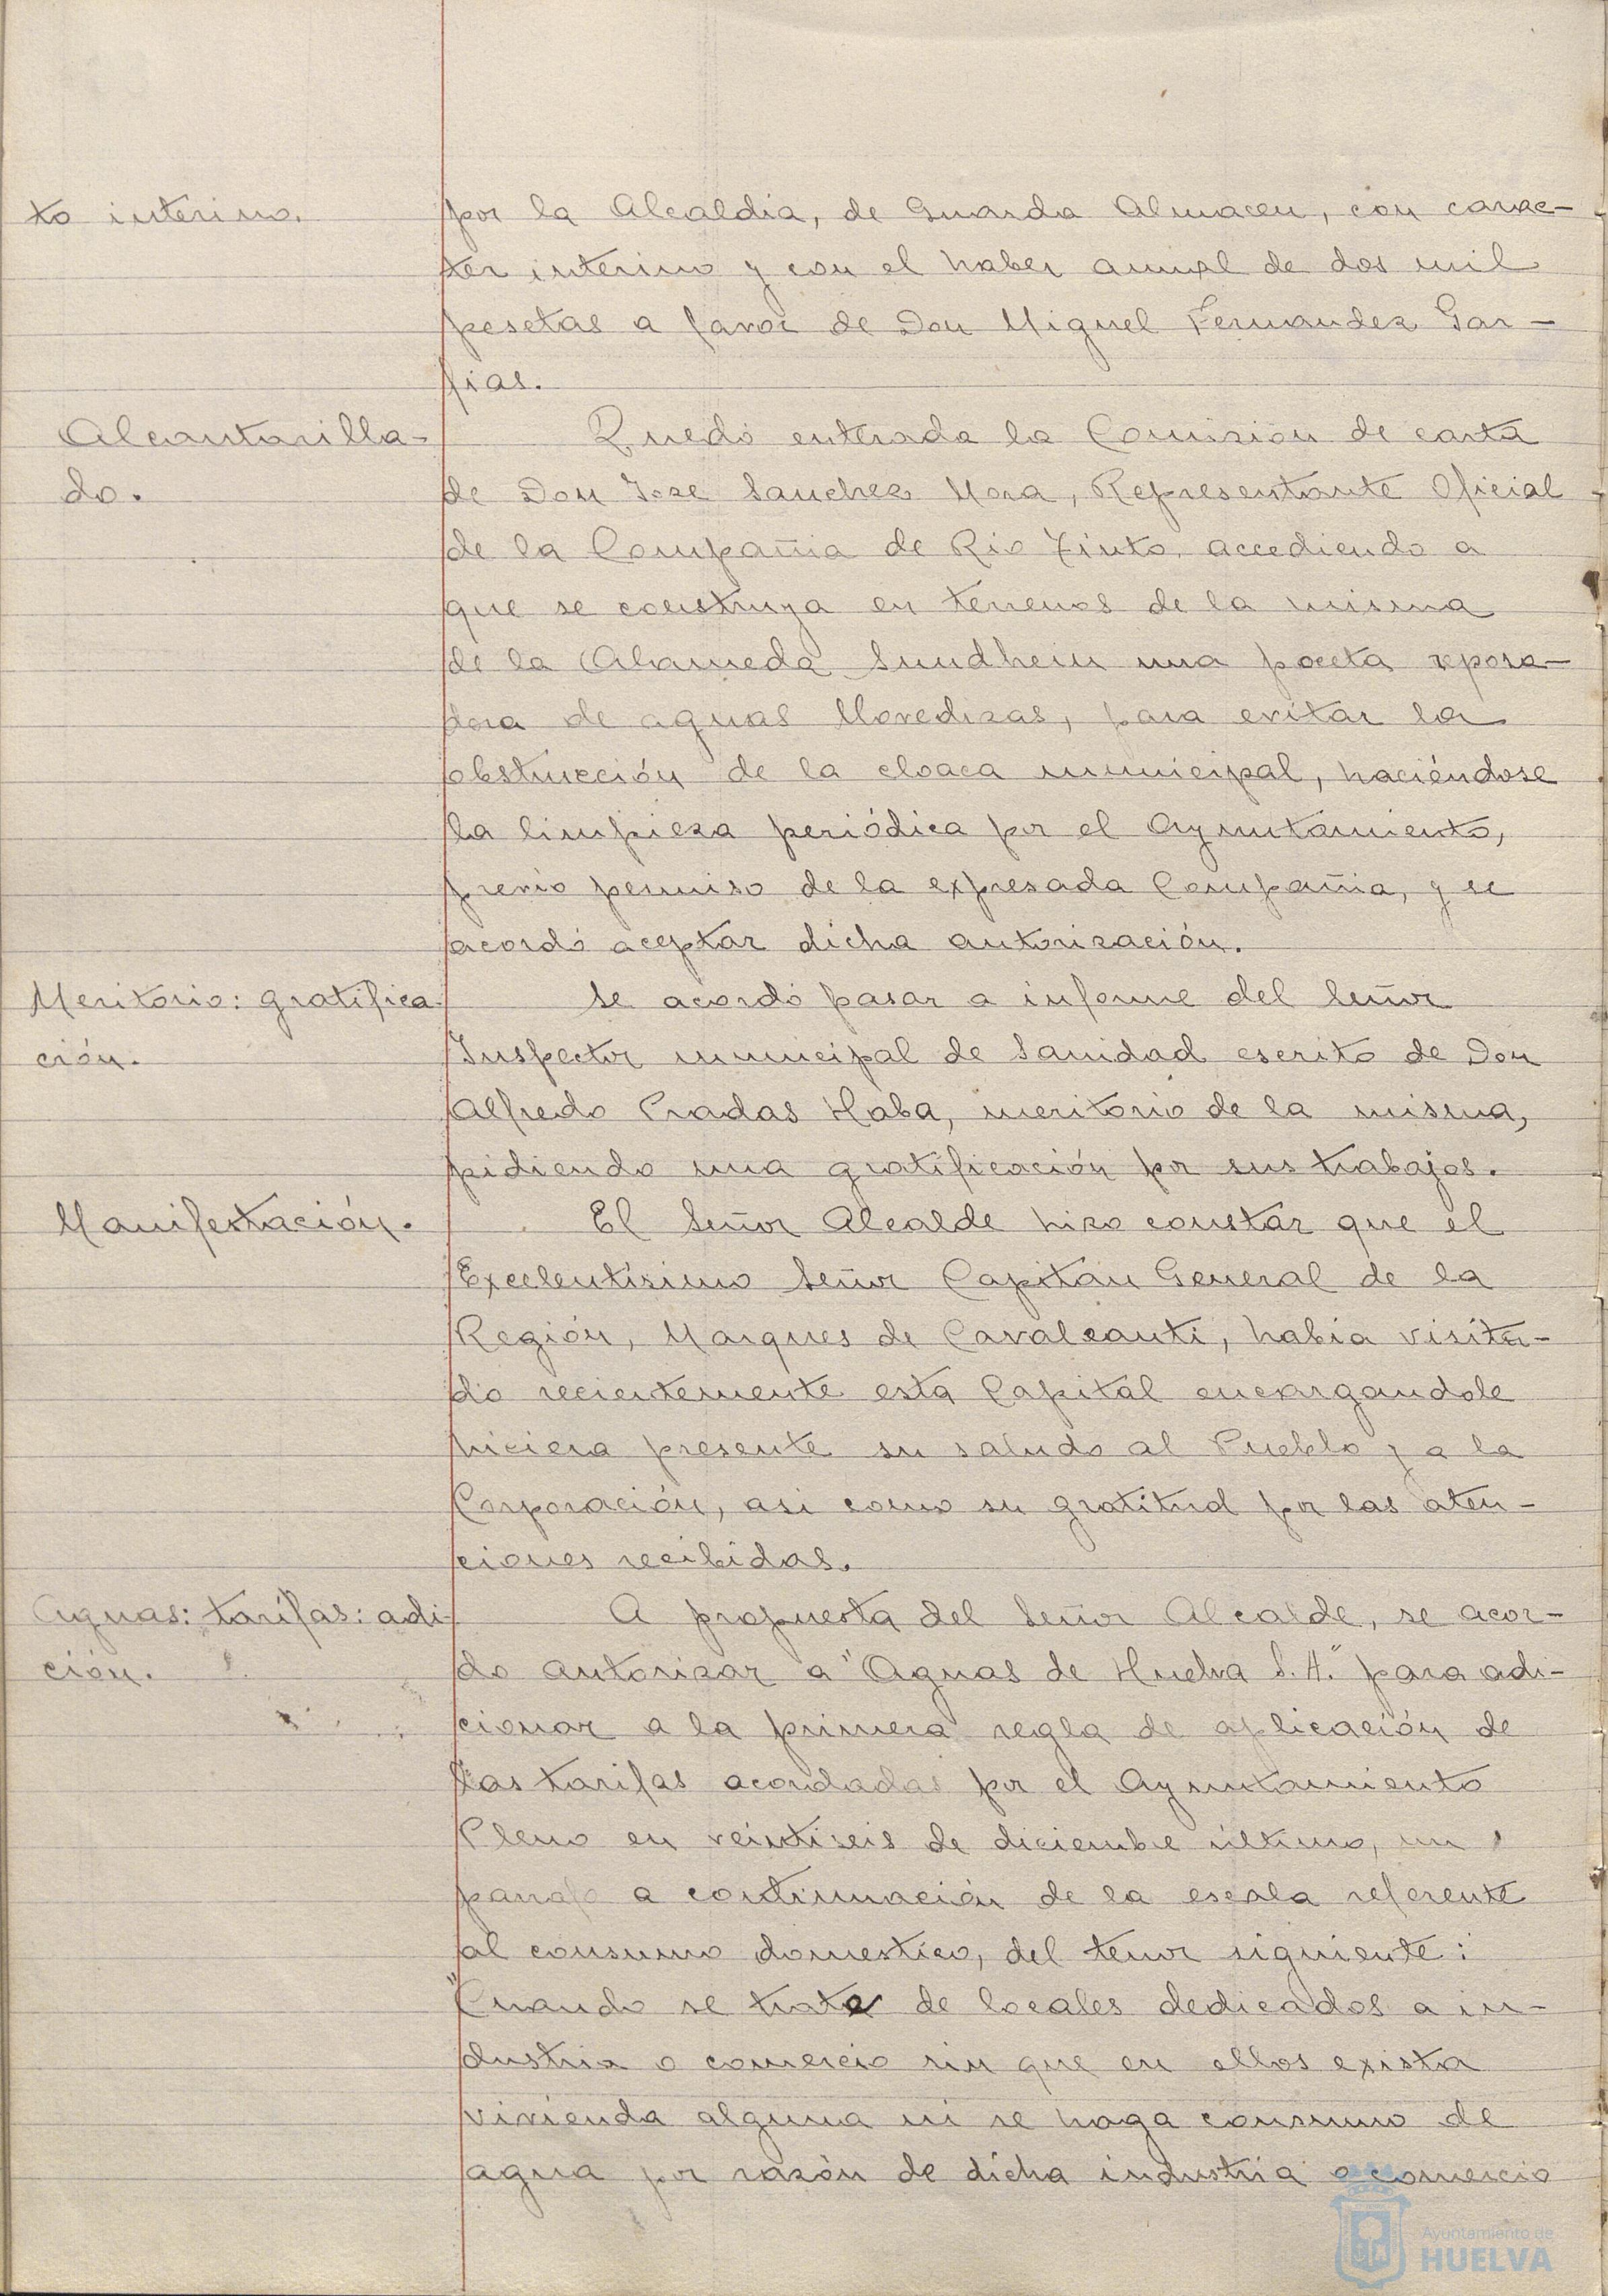 to interino.
por la Alcaldia, de Guarda Almacen, con carac-
ter interino y con el haber anual de dos mil
pesetas a favor de Don Miguel Fernandez Gar-
fias.
Alcantarilla-
do.
Quedó enterada la Comision de carta
de Don Jose Sanchez Mora, Representante Oficial
de la Compañia de Rio Tinto, accediendo a
que se construya en terrenos de la misma
de la Alameda Sundhein una poceta reposa-
dora de aguas llovedizas, para evitar la
obstrucción de la cloaca municipal, haciéndose
la limpieza periódica por el Ayuntamiento,
previo permiso de la expresada Compañia, y se
acordó aceptar dicha autorización.
Meritorio: gratifica-
ción.
Se acordó pasar a informe del Señor
Inspector municipal de Sanidad escrito de Don
Alfredo Pradas Haba, meritorio de la misma,
pidiendo una gratificación por sus trabajos.
Manifestación.
El Señor Alcalde hizo constar que el
Excelentísimo Señor Capitan General de la
Región, Marques de Cavalcanti, habia visita-
do recientemente esta Capital encargandole
hiciera presente su saludo al Pueblo y a la
Corporación, asi como su gratitud por las aten-
ciones recibidas.
Aguas: tarifas: adi-
ción.
A propuesta del Señor Alcalde, se acor-
do autorizar a "Aguas de Huelva S.A." para adi-
cionar a la primera regla de aplicación de
las tarifas acordadas por el Ayuntamiento
Pleno en veintiseis de diciembre último, un
parrafo a continuación de la escala referente
al consumo domestico, del tenor siguiente:
"Cuando se trate de locales dedicados a in-
dustria o comercio sin que en ellos exista
vivienda alguna ni se haga consumo de
agua por razón de dicha industria o comercio
Ayuntamiento de
HUELVA